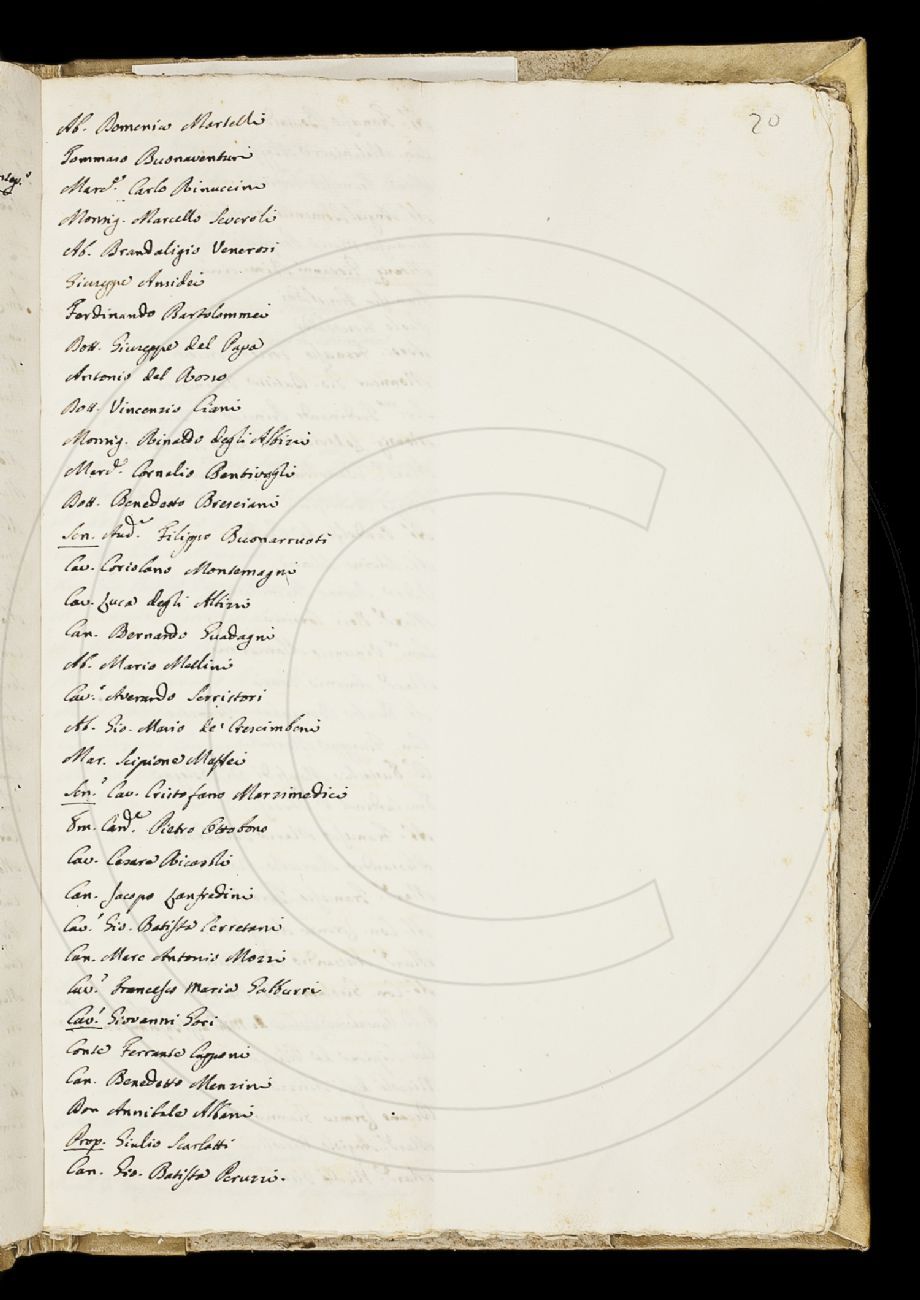 20
Ab. Domenico Martelli
Tommaso Buonaventuri
March.e Carlo Rinuccini
Monsig. Marcello Severoli
Ab. Brandaligio Venerosi
Giuseppe Ansidei
Ferdinando Bartolommei
Dott. Giuseppe del Papa
Antonio del Rosso
Dott. Vincenzio
Monsig. Rinaldo degli Albizi
March.e Cornelio Bentivogli
Dott. Benedetto Bresciani
Sen. Aud.e Filippo Buonarruoti
Cav. Coriolano Montemagni
Cav. Luca degli Albizi
Can. Bernardo Guadagni
Ab. Mario Mellini
Cav.e Averardo Serristori
Ab. Gio. Mario de' Crescimbeni
Mar. Scipione Maffei
Sen.e Cav. Cristofano Marzimedici
Em. Card.e Pietro Ottobono
Cav. Cesare Ricasoli
Can. Jacopo Lanfredini
Cav.e Gio. Batista Cerretani
Can. Marc Antonio Mozzi
Cav.e Francesco Maria Gabburri
Cav.e Giovanni Gori
Conte Ferrante Capponi
Can. Benedetto Menzini
Don Annibale Albani
Prop. Giulio Scarlatti
Can. Gio. Batista Peruzzi.